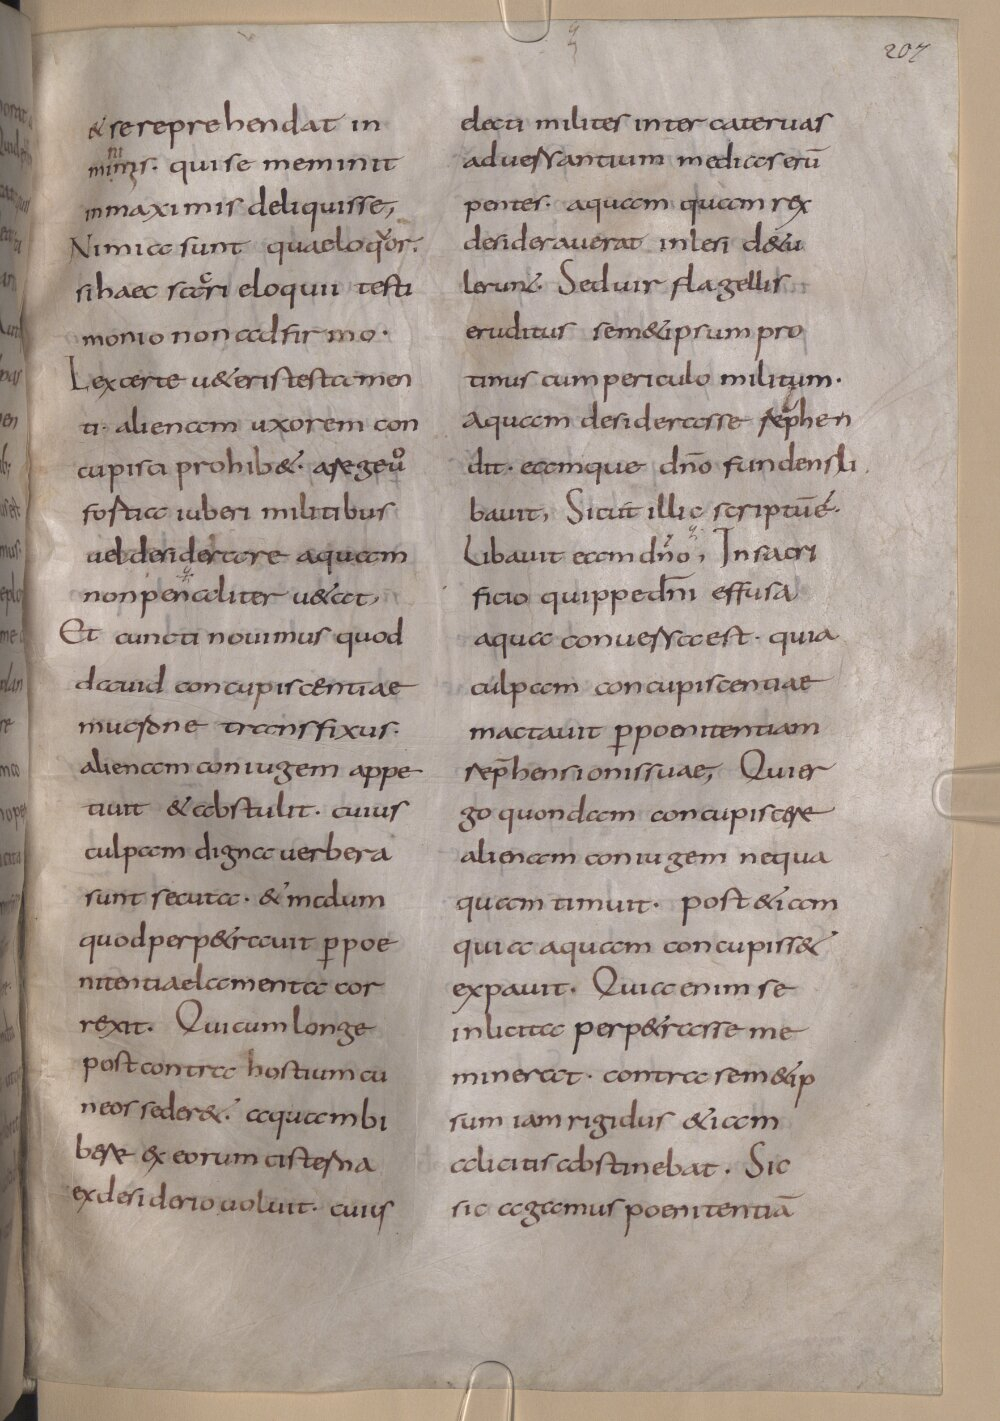 207
& se reprehendat in
minimis. qui se meminit
in maximis deliquisse;
Nimia sunt quae loquor.
si haec sacri eloquii testi
monio non adfirmo.
Lex certe u&eris testamen
ti. alienam uxorem con
cupisci prohib&. a rege uo
fortia iuberi militibus
uel desiderare aquam
non penaliter u&at,
Et cuncti nouimus quod
dauid concupiscentiae
mucrone transfixus.
alienam coniugem appe
tiuit & abstulit. cuius
culpam digna uerbera
sunt secuta. & malum
quod perp&rauit p poe
nitentiae lamenta cor
rexit. Qui cum longe
post contra hostium cu
neos seder&. aquam bi
bere ex eorum cisterna
ex desiderio uoluit. cuius
electi milites inter cateruas
aduersantium medias erū
pentes. aquam quam rex
desiderauerat inlesi d&u
lerunt. Sed uir flagellis
eruditus sem&ipsum pro
tinus cum periculo militum.
Aquam desiderasse rephen
dit. eamque dño fundens li
bauit, Sicut illic scriptū é.
Libauit eam dño, In sacri
ficio quippe dñi effusa
aqua conuersa est. quia
culpam concupiscentiae
mactauit p poenitentiam
rephensionis suae, Qui er
go quondam concupiscere
alienam coniugem nequa
quam timuit. post &iam
quia aquam concupiss&
expauit. Quia enim se
inlicita perp&rasse me
minerat. contra sem&ip
sum iam rigidus &iam
a licitis abstinebat. Sic
sic agamus poenitentiā